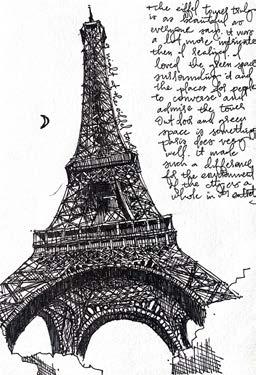 the eiffel tower truly
is as beautiful as
everyone says. it was
a lot more intricate
then I realized. I
loved the green space
surrounding it and
the places for people
to converse and
admire the tower.
Outdoor and green
space is something
paris does very
well. it made
such a difference
for the environment
of the city as a
whole in its entirety